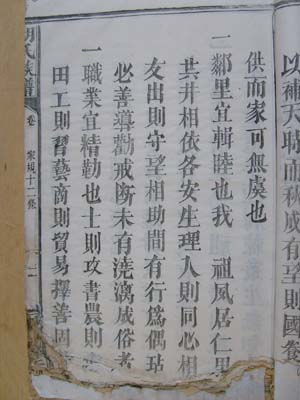 以補天時而秋成有以國
供而家可無虞也
一鄰里宜輯睦也我 祖風居仁里
共井相依各安生理入則同心相
友出則守望相助間有行為偶玷
必善導勸戒斷未有澆漓成俗者
一職業宜精勤也士則攻書農則
田工則習藝商則貿易擇善固
胡氏族譜 卷 家規十二條 二